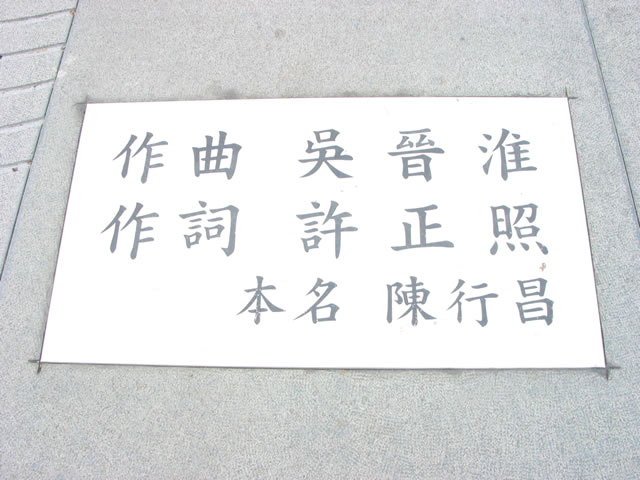 作曲 吳晉淮
作詞 許正照
本名 陳行昌